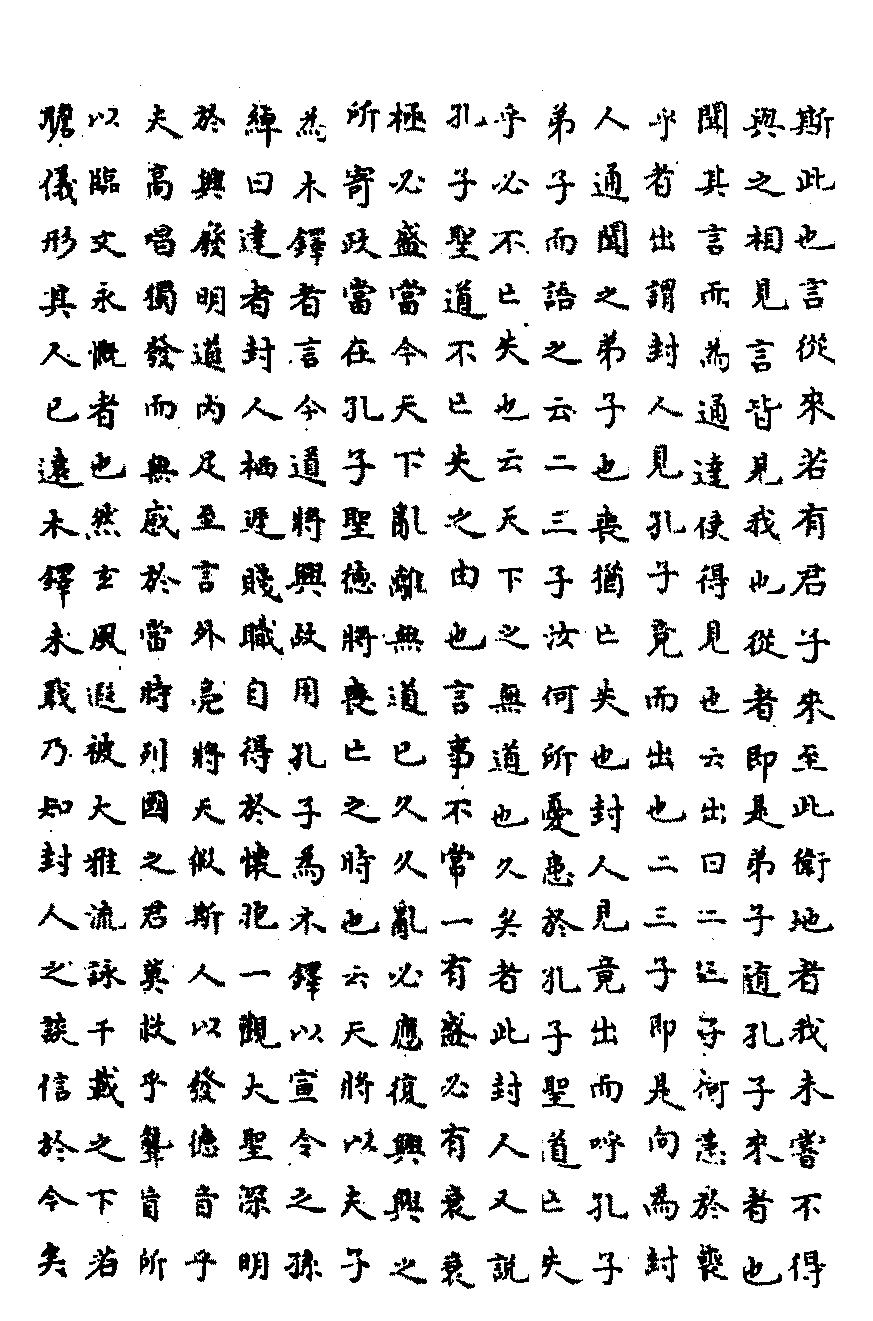 斯此也言從來若有君子來至此衛地者我未嘗不得
與之相見言皆見我也從者即是弟子隨孔子來者也
聞其言而為通達使得見也云出曰二三子何患於喪
乎者出謂封人見孔子竟而出也二三子即是向為封
人通聞之弟子也喪猶亡失也封人見竟出而呼孔子
弟子而語之云二三子汝何所憂患於孔子聖道亡失
乎必不亡失也云天下之無道也久矣者此封人又說
孔子聖道不亡失之由也言事不常一有盛必有衰衰
極必盛當今天下亂離無道已久久亂必應復興興之
所寄政當在孔子聖德將喪亡之時也云天將以夫子
為木鐸者言今道將興故用孔子為木鐸以宣令之孫
綽曰達者封人栖遲賤職自得於懷抱一觀大聖深明
於興廢明道內足至言外亮將天假斯人以發德音乎
夫高唱獨發而無感於當時列國之君莫救乎聾盲所
以臨文永慨者也然玄風遐被大雅流詠千載之下若
瞻儀形其人已遠木鐸未戢乃知封人之談信於今矣